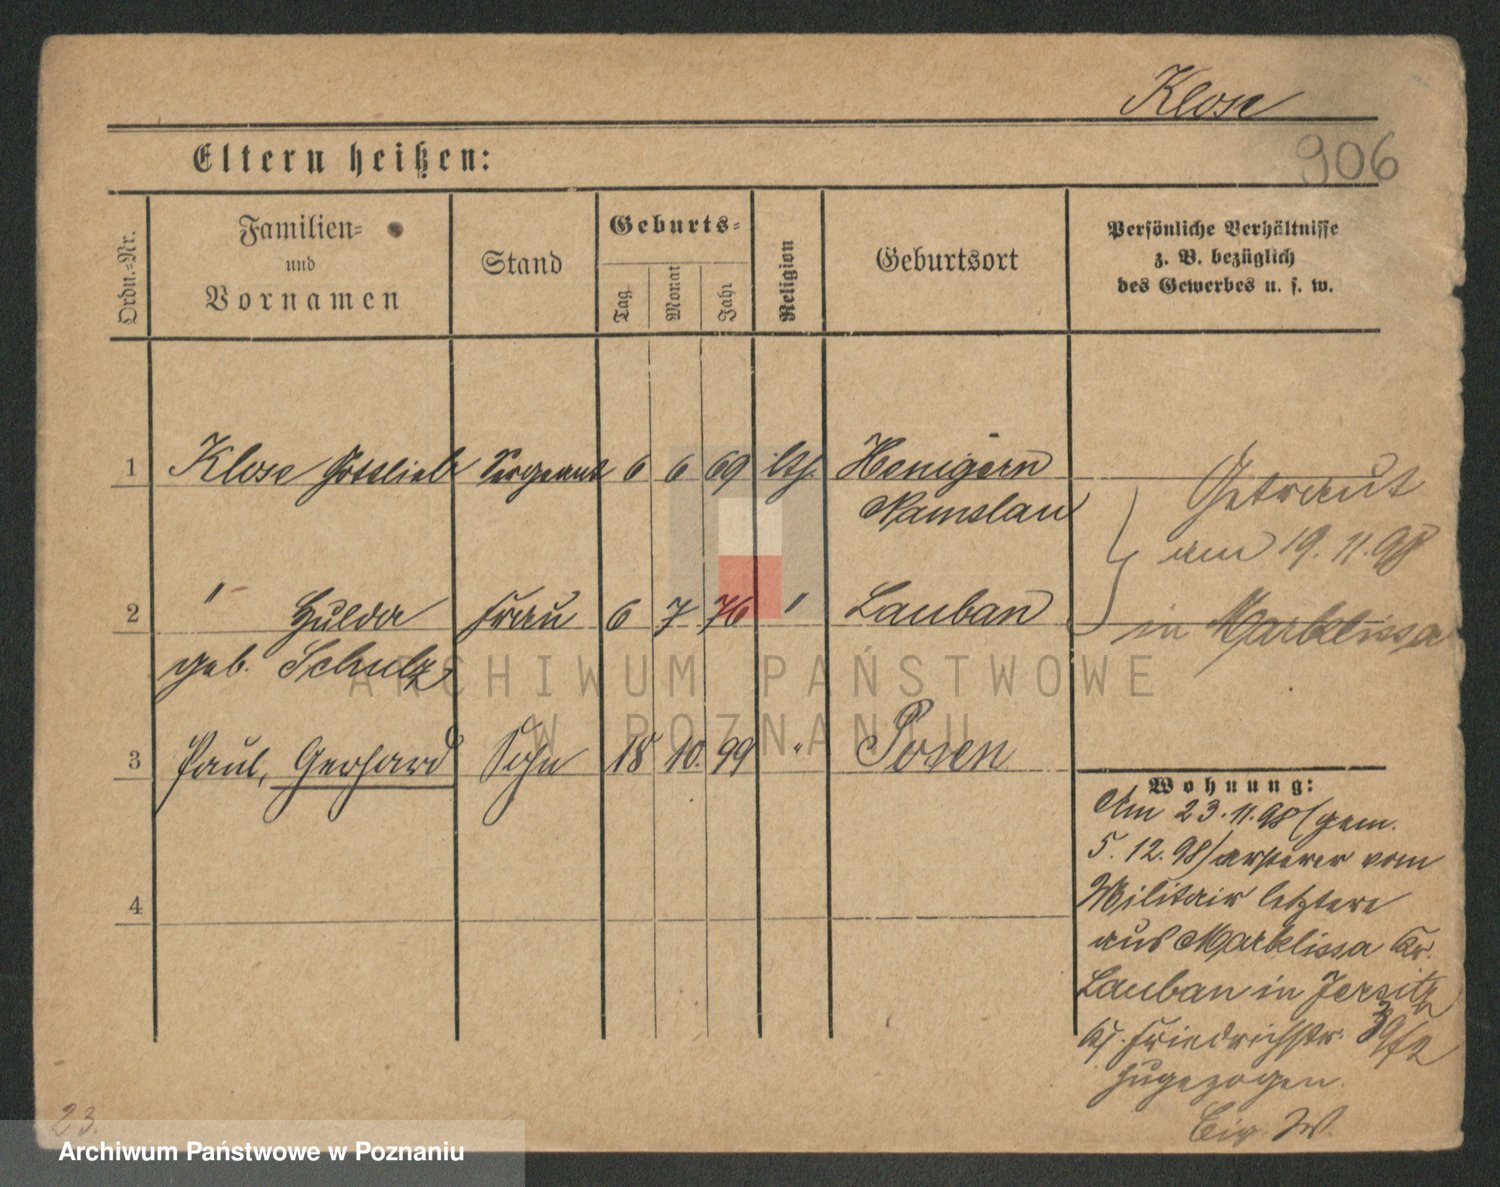 Klose
906
Eltern heißen:
Ordn.-Nr.
Familien-
und
Vornamen
Stand
Geburts-
Tag
Monat
Jahr
Religion
Geburtsort
Persönliche Verhältnisse
z. B. bezüglich
des Gewerbes u. s. w.
1 Klose Gottlieb Sergeant 6 6 69 Henigern
Namslau
Getraut
am 19.11.98
in Marklissa
2 " Hulda Frau 6 7 76 " Lauban
geb. Schulz
3 Paul, Gerhard Sohn 18 10. 99 " Posen
4
Wohnung:
Am 23.11.98 (gem.
5.12.98) ersterer vom
Militair letztere
aus Marklissa Kr.
Lauban in Jersitz
Friedrichstr.
zugezogen.
23.
ARCHIWUM PAŃSTWOWE
W POZNANIU
Archiwum Państwowe w Poznaniu